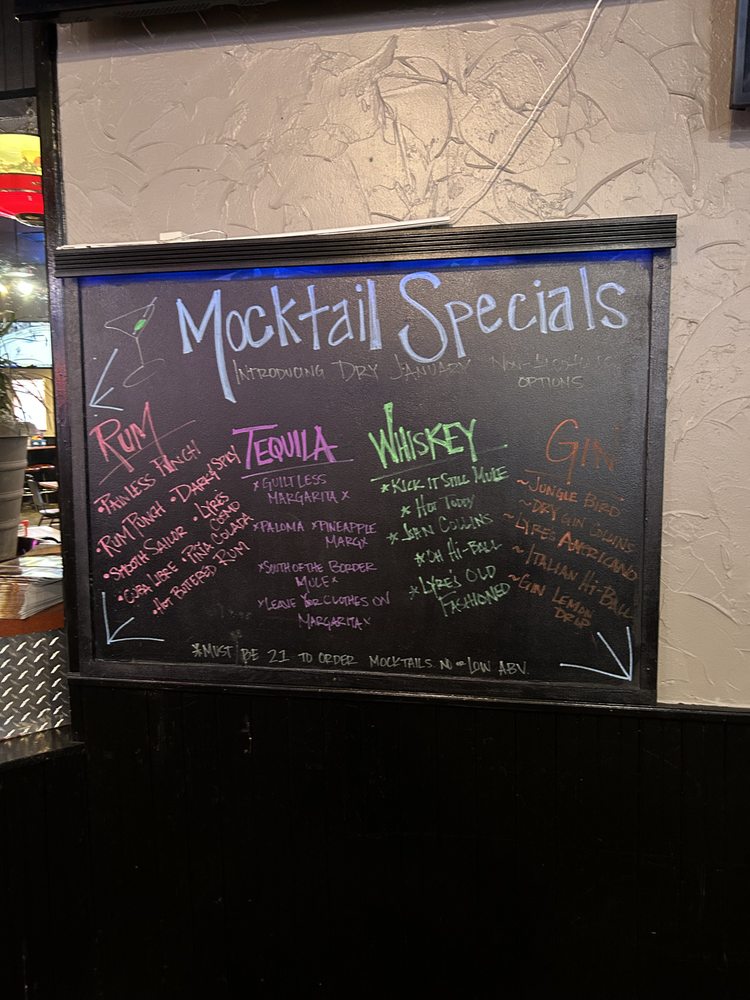 Mocktail Specials
Introducing Dry January Non-Alcoholic
Options
Rum
•Painless Punch
•Dark & Spicy
•Rum Punch
•Lyres
•Smooth Sailor
•Cuba Libre •Piña Colata
•Hot Buttered Rum
Tequila
*Guiltless
Margarita*
*Paloma *Pineapple
Marg*
*South of the Border
Mule*
*Leave Your Clothes On
Margarita*
Whiskey
*Kick It Still Mule
*Hot Toddy
*John Collins
*Oh Hi-Ball
*Lyre's Old
Fashioned
Gin
~Jungle Bird
~Dry Gin Collins
~Lyre's Americano
~Italian Hi-Ball
~Gin Lemon
Drop
*Must Be 21 to order mocktails no or low ABV.